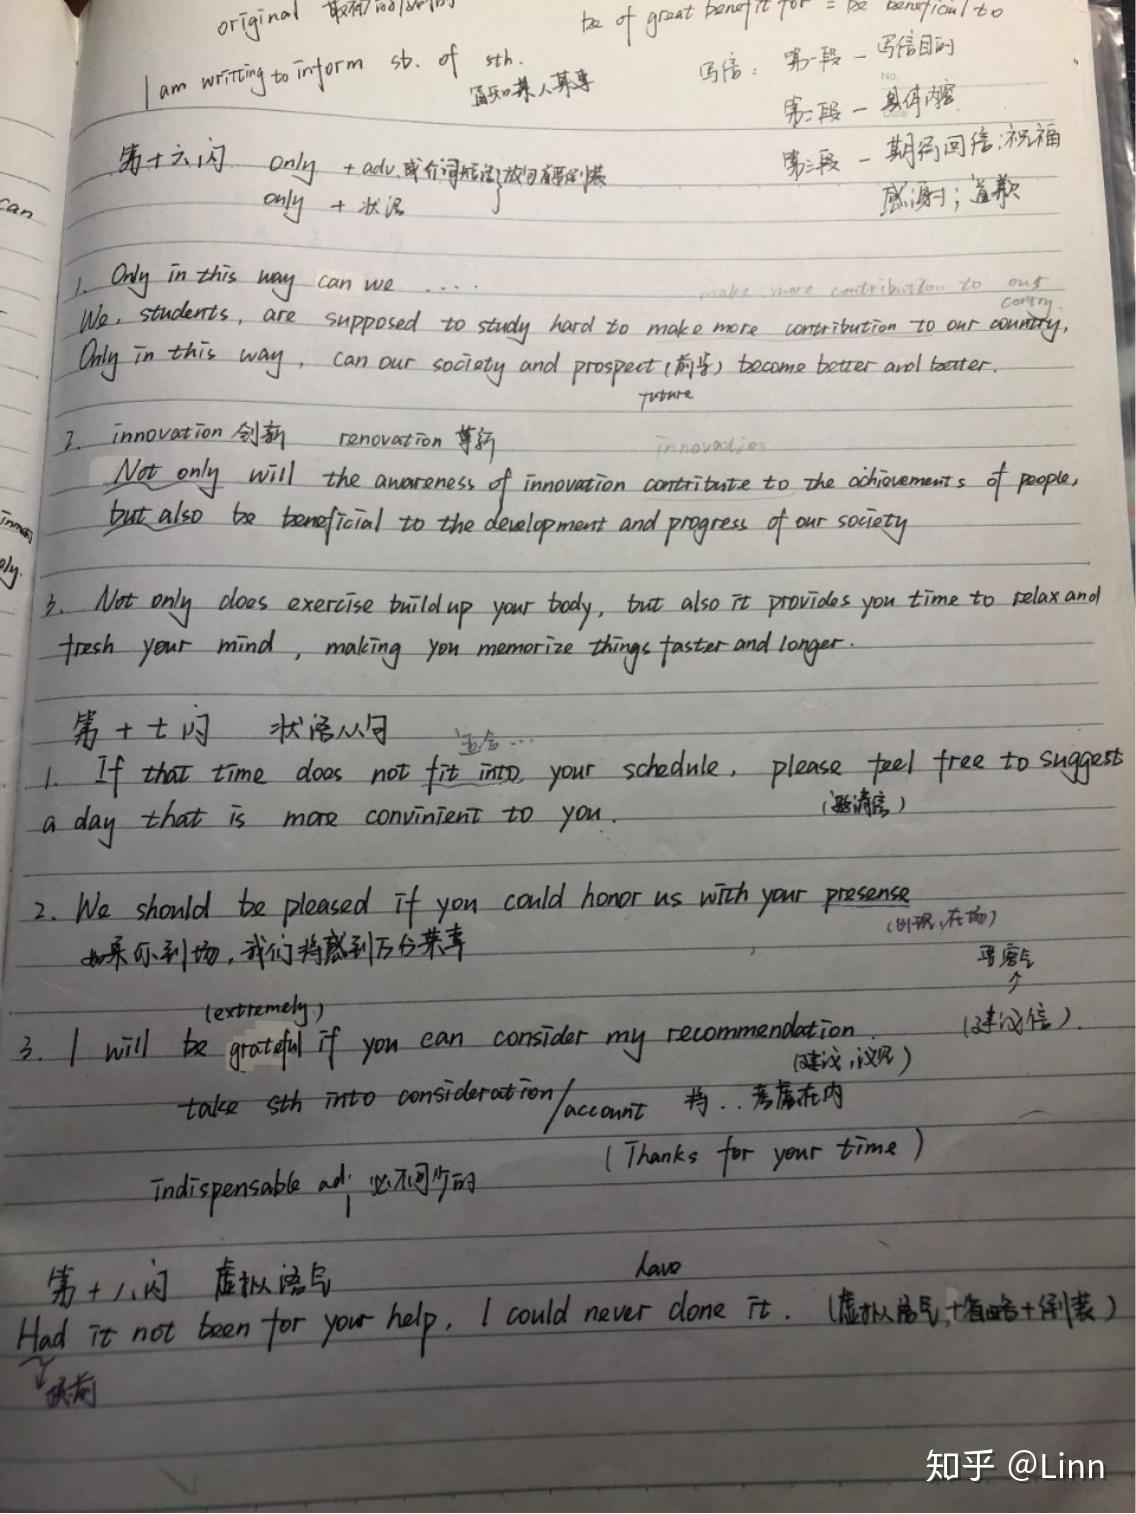 original
be of great benefit for = be beneficial to
I am writting to inform sb. of sth.
告知某人某事
写信: 第一段 - 写信目的
第二段 - 具体内容
第三段 - 期待回信;祝福
感谢;道歉
第十六闪 only + adv. 或介词短语
only + 状语
1. Only in this way can we ....
make more contribution to our
contry
We, students, are supposed to study hard to make more contribution to our country,
Only in this way, can our society and prospect (前景) become better and better.
future
2. innovation 创新 renovation 革新
innovation
Not only will the awareness of innovation contribute to the achievements of people,
but also be beneficial to the development and progress of our society
3. Not only does exercise build up your body, but also it provides you time to relax and
fresh your mind, making you memorize things faster and longer.
第十七闪 状语从句
适合...
1. If that time does not fit into your schedule, please feel free to suggest
a day that is more convinient to you.
(邀请信)
2. We should be pleased if you could honor us with your presense
(出现,在场)
如果你到场,我们将感到万分荣幸
(extremely)
3. I will be grateful if you can consider my recommendation. (建议信).
(建议,议见)
take sth into consideration/account 将..考虑在内
(Thanks for your time)
indispensable adj 必不可少的
第十八闪 虚拟语气
have
Had it not been for your help, I could never done it. (虚拟语气+省略+倒装)
提前
知乎 @Linn